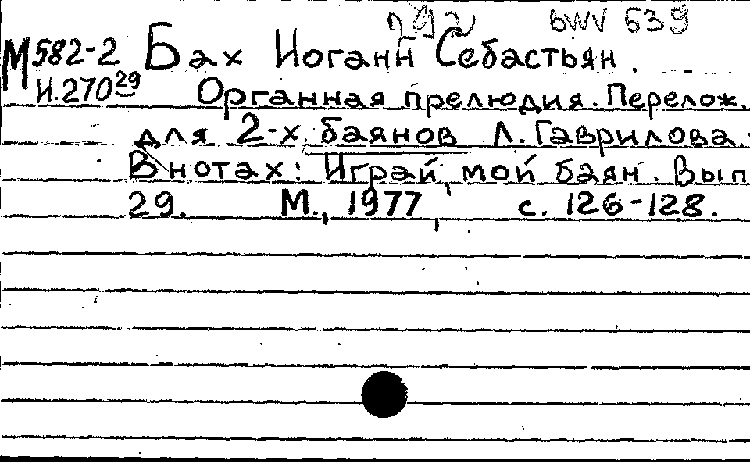 BWV 639
М582-2 Бах Иоганн Себастьян.
И.270 29 Органная прелюдия. Перелож.
для 2-х баянов Л. Гаврилова.
В нотах: Играй, мой баян. Вып
29. М., 1977, с. 126-128.